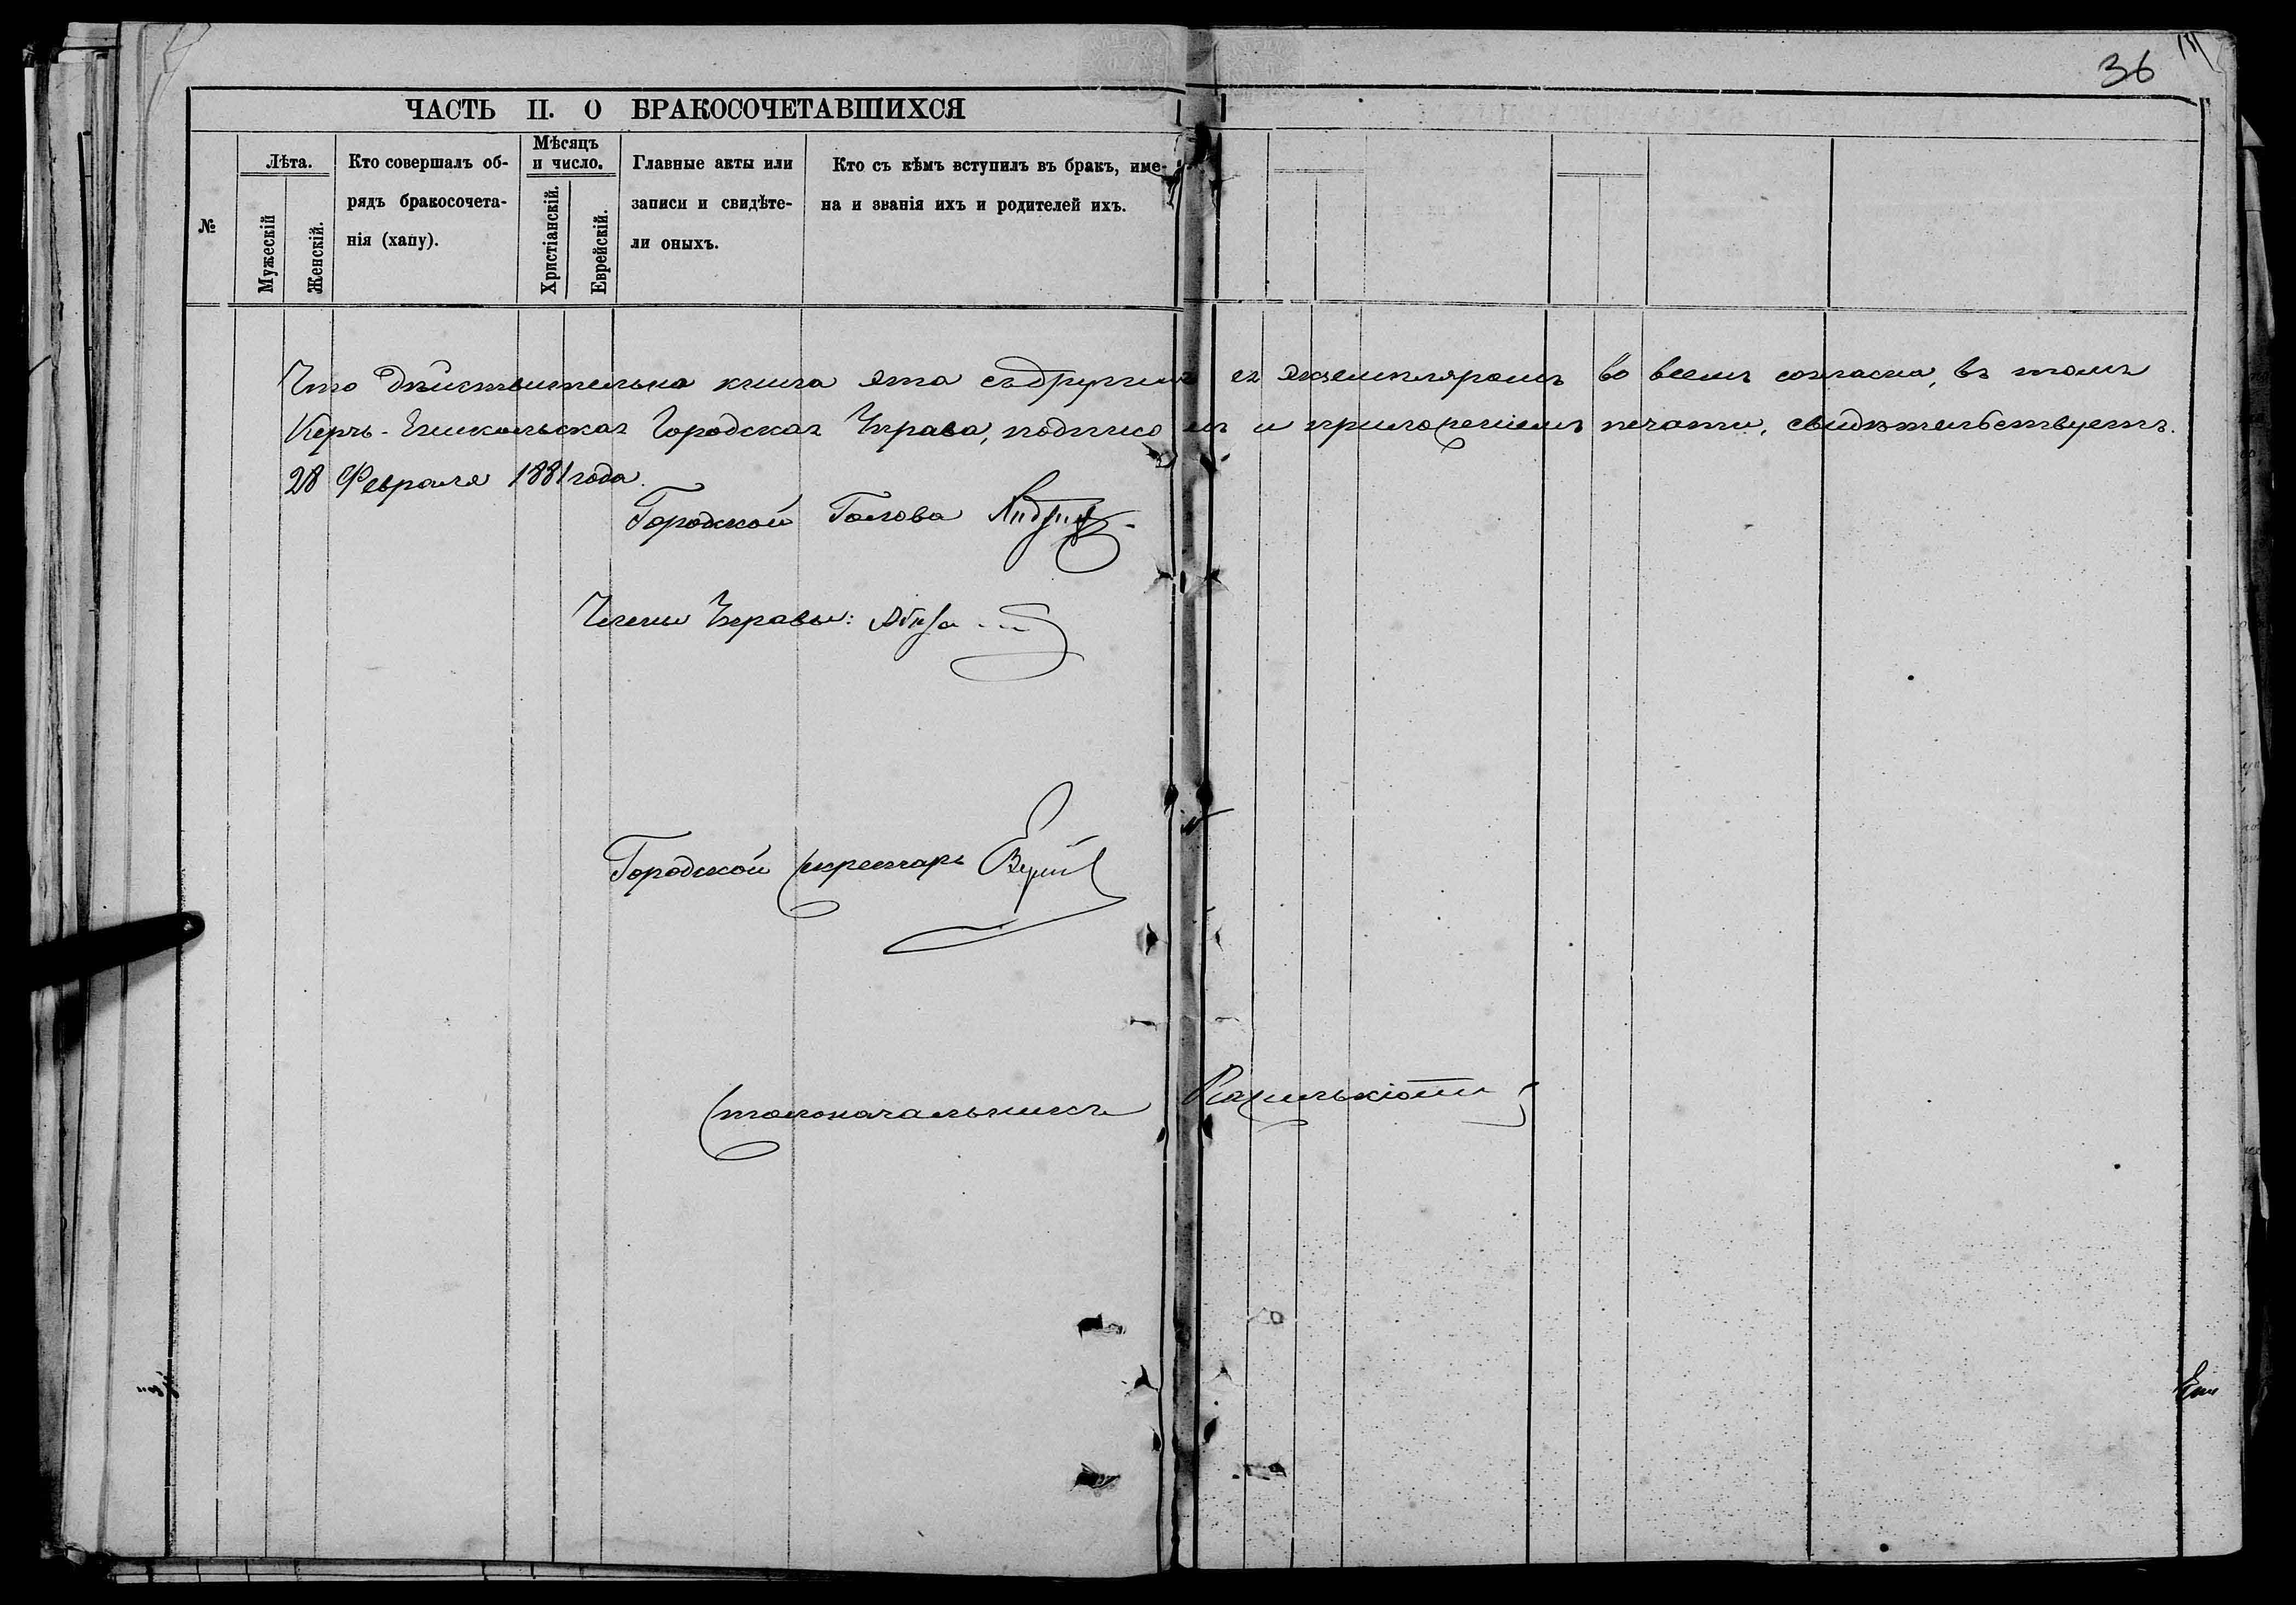 36
ЧАСТЬ II. О БРАКОСОЧЕТАВШИХСЯ
№
Лѣта.
Мужескій
Женскій.
Кто совершалъ об-
рядъ бракосочета-
нія (хапу).
Мѣсяцъ
и число.
Христіанскій.
Еврейскій.
Главные акты или
записи и свидѣте-
ли оныхъ.
Кто съ кѣмъ вступилъ въ бракъ, име-
на и званія ихъ и родителей ихъ.
Что дѣйствительно книга эта съ другимъ ея экземпляромъ во всемъ согласна, въ томъ
Керчь-Еникольская Городская Управа, подписомъ и приложеніемъ печати, свидѣтельствуетъ.
28 Февраля 1881 года.
Городской Голова
Члены Управы:
Городской Секретарь
Столоначальникъ